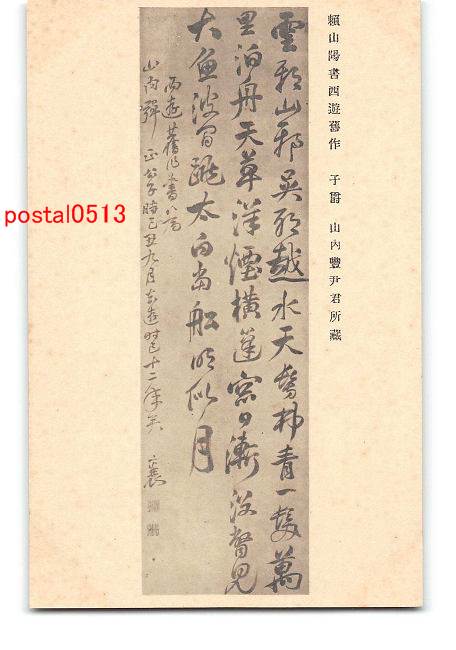 頼山陽書西遊舊作 子爵 山內豐尹君所藏
雲耶山耶呉耶越水天髣髴青一髮萬
里泊舟天草洋煙橫篷窓日漸没瞥見
大魚波間跳太白當船明似月
西遊舊作書為
山內 正公子時己丑九月 遊 十二年矣 襄
postal0513